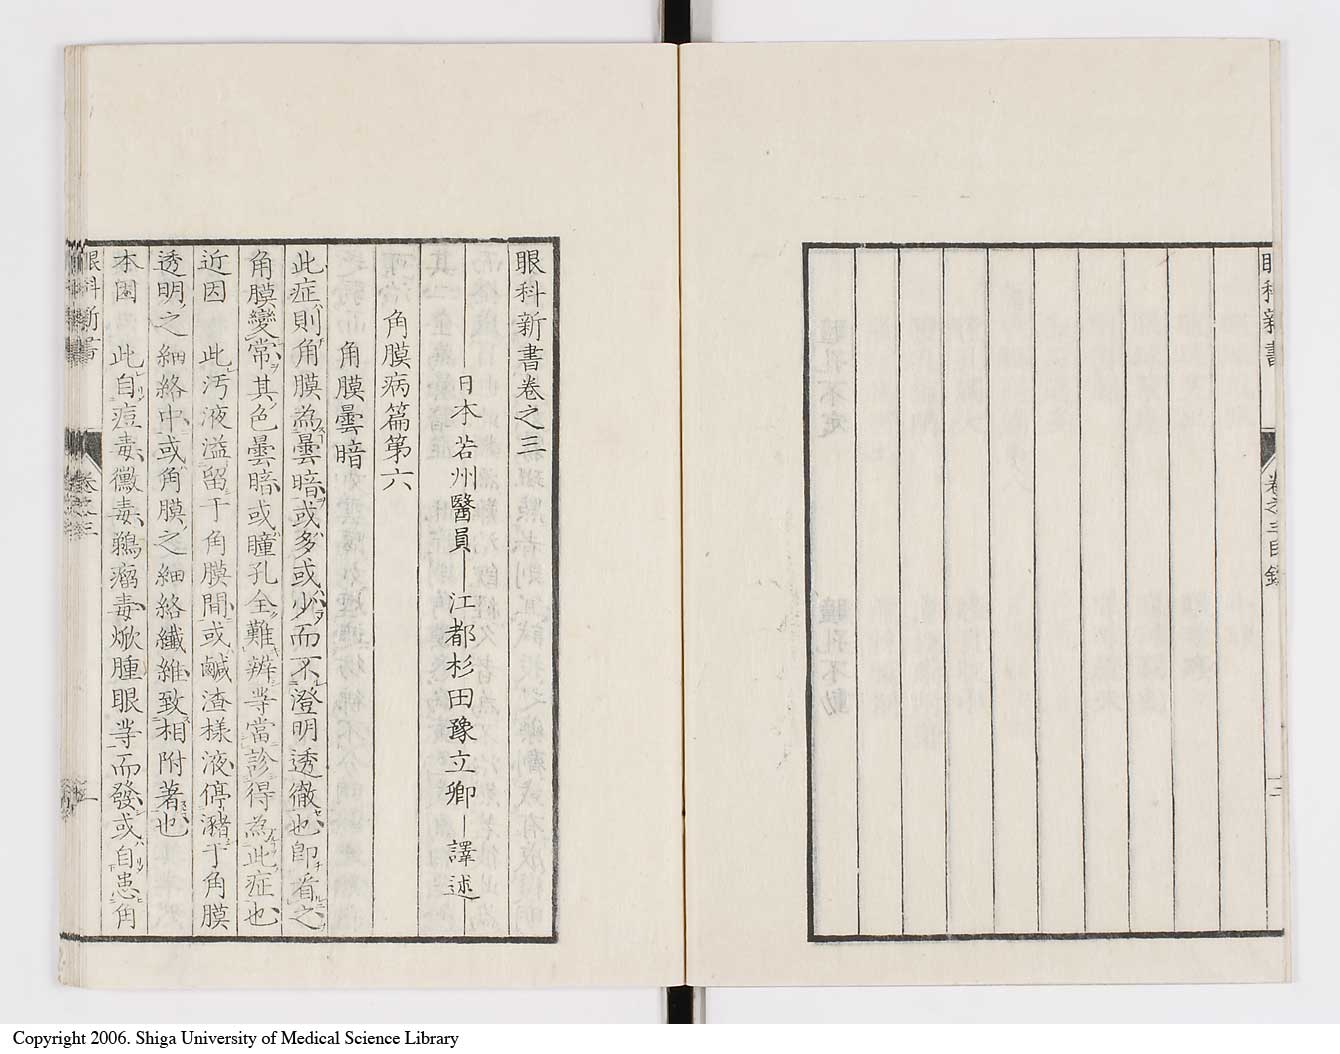 眼科新書
卷之三目錄
眼科新書卷之三
日本若州醫員 江都杉田豫立卿 譯述
角膜病篇第六
角膜曇暗
此症則角膜為曇暗或多或少而不澄明透徹也即看之
角膜變常其色曇暗或瞳孔全難辨等當診得為此症也
近因 此汚液溢留于角膜間或鹹渣樣液停瀦于角膜
透明之細絡中或角膜之細絡纖維致相附著也
本因 此自痘毒黴毒鵝瘤毒焮腫眼等而發或自患角
眼科新書
卷之三
一
Copyright 2006. Shiga University of Medical Science Library